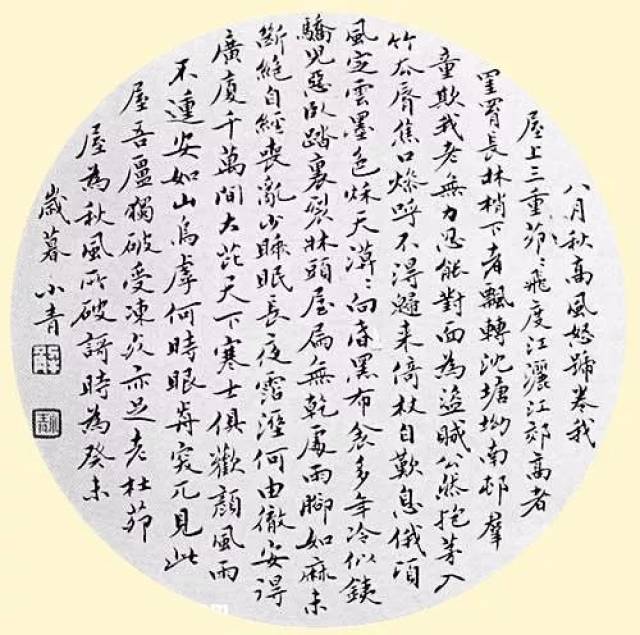 八月秋高風怒號卷我
屋上三重茆〻飛度江灑江郊高者
罣罥長林梢下者飄轉沈塘坳南邨羣
童欺我老無力忍能對面為盜賊公然抱茅入
竹去脣焦口燥呼不得歸来倚杖自歎息俄頃
風定雲墨色秌天漠〻向昏黑布衾多年冷似銕
驕兒惡臥踏裏裂牀頭屋扃無乾處雨腳如麻未
斷絕自經喪亂少睡眠長夜霑溼何由徹安得
廣廈千萬間大芘天下寒士俱歡顏風雨
不𨔝安如山烏虖何時眼歬突兀見此
屋吾廬獨破受凍死亦足老杜茆
屋為秋風所破謌時為癸未
歲暮 小青